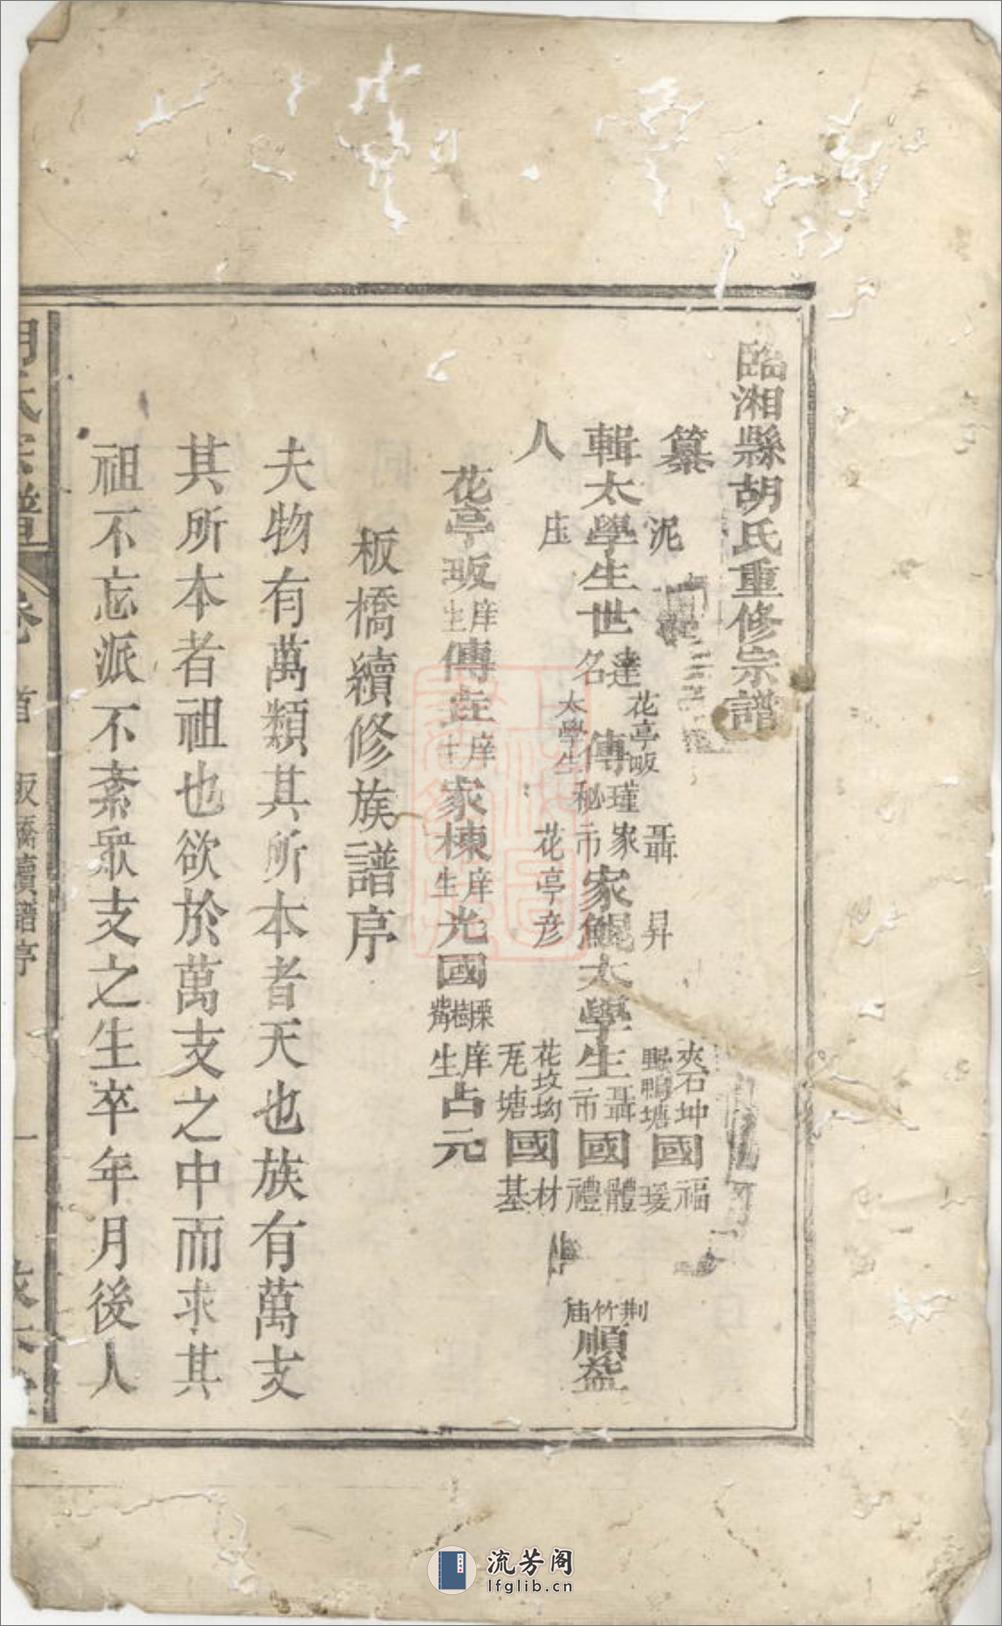 臨湘縣胡氏重修宗譜
纂輯人
泥庄
太學生世達名
花亭畈太學生傳瑾秘
聶家市花亭
昇彦
家鯤太學生
夾石坤鴨塘國福瑗
三聶市國體禮
花坟坳𠒎塘國材基
荆竹庙順益
花亭畈庠生傳莊庠生家棟庠生光國栗樹嘴庠生占元
板橋續修族譜序
夫物有萬類其所本者天也族有萬支
其所本者祖也欲於萬支之中而求其
祖不忘派不紊衆支之生卒年月後人
胡氏宗譜 卷首 板橋續譜序 一
流芳阁
lfglib.cn